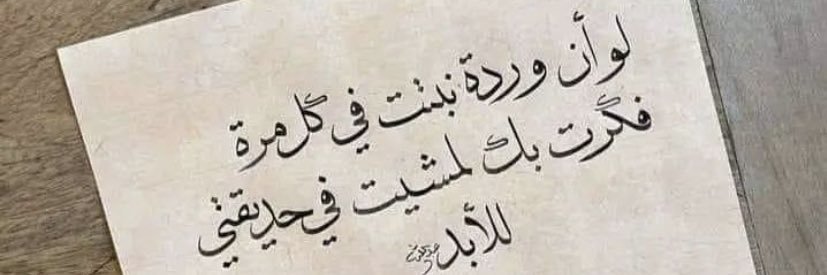 لو أن وردة نبتت في كل مرة
فكرت بك لمشيت في حديقتي
للأبد